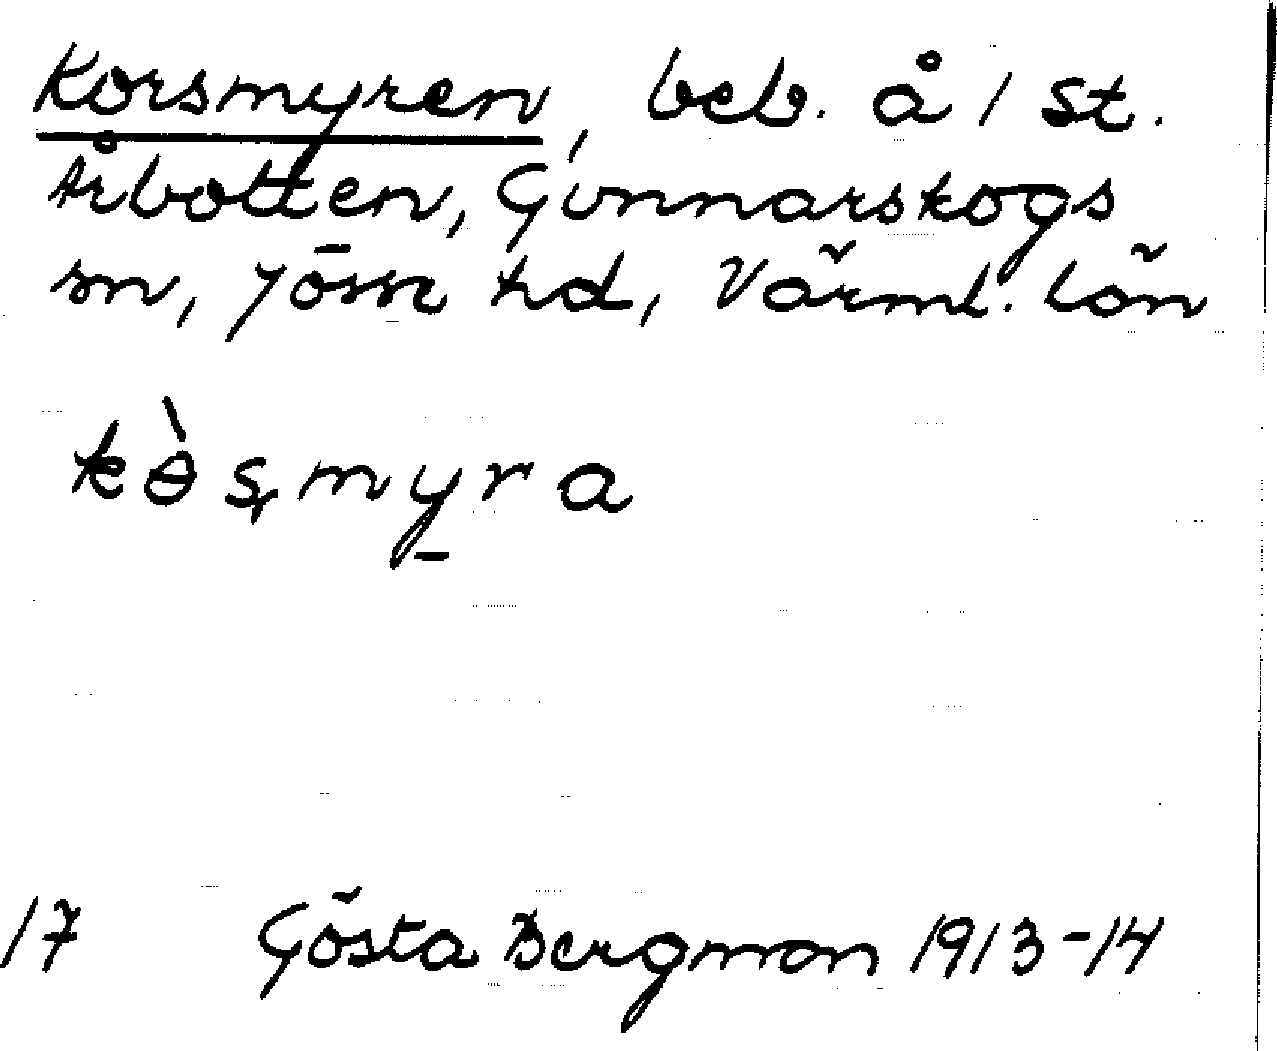 Korsmyren, beb. å 1 St.
Årbotten, Gunnarskogs
sn, Jösse hd, Värml. län
kɵ̀șmyra
17 Gösta Bergman 1913-14